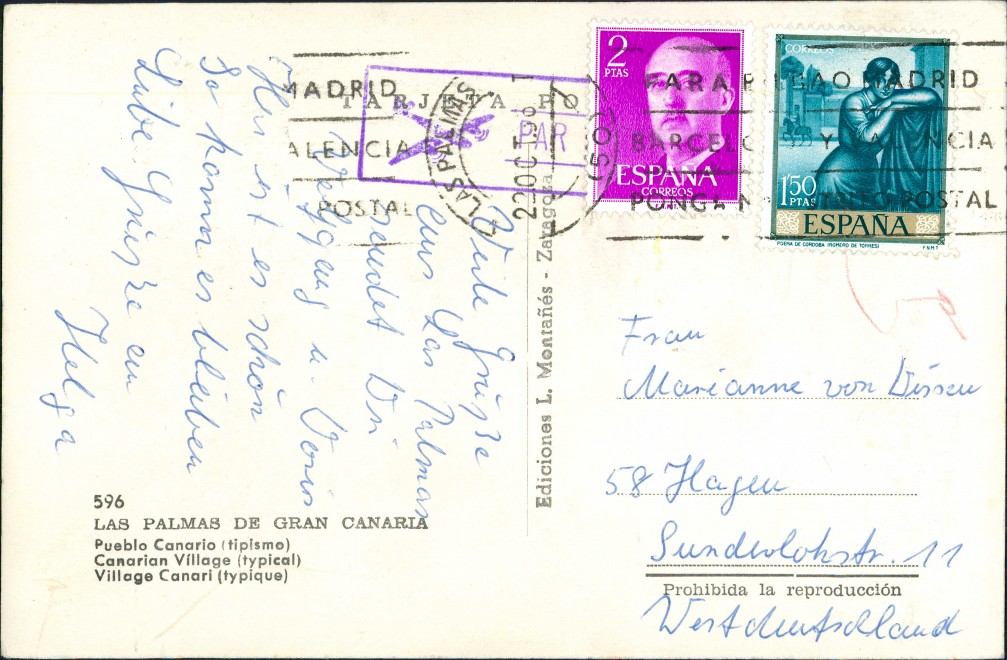 TARJETA PO
PAR
LAS PALMAS
22 OCT
MADRID
VALENCIA
POSTAL
PARA BILBAO MADRID
BARCEL Y VALENCIA
PONGA POSTAL
2
PTAS
ESPAÑA
CORREOS
CORREOS
1'50
PTAS
ESPAÑA
POEMA DE CORDOBA (ROMERO DE TORRES)
F.N.M.T.
Viele Grüße
aus Las Palmas
sendet Dir
u. Doris
Hier ist es schön
So kann es bleiben
Liebe Grüsse an
Helga
Ediciones L. Montañés - Zaragoza
Frau
Marianne von Dissen
58 Hagen
Sunderlohstr. 11
Westdeutschland
Prohibida la reproducción
596
LAS PALMAS DE GRAN CANARIA
Pueblo Canario (tipismo)
Canarian Village (typical)
Village Canari (typique)